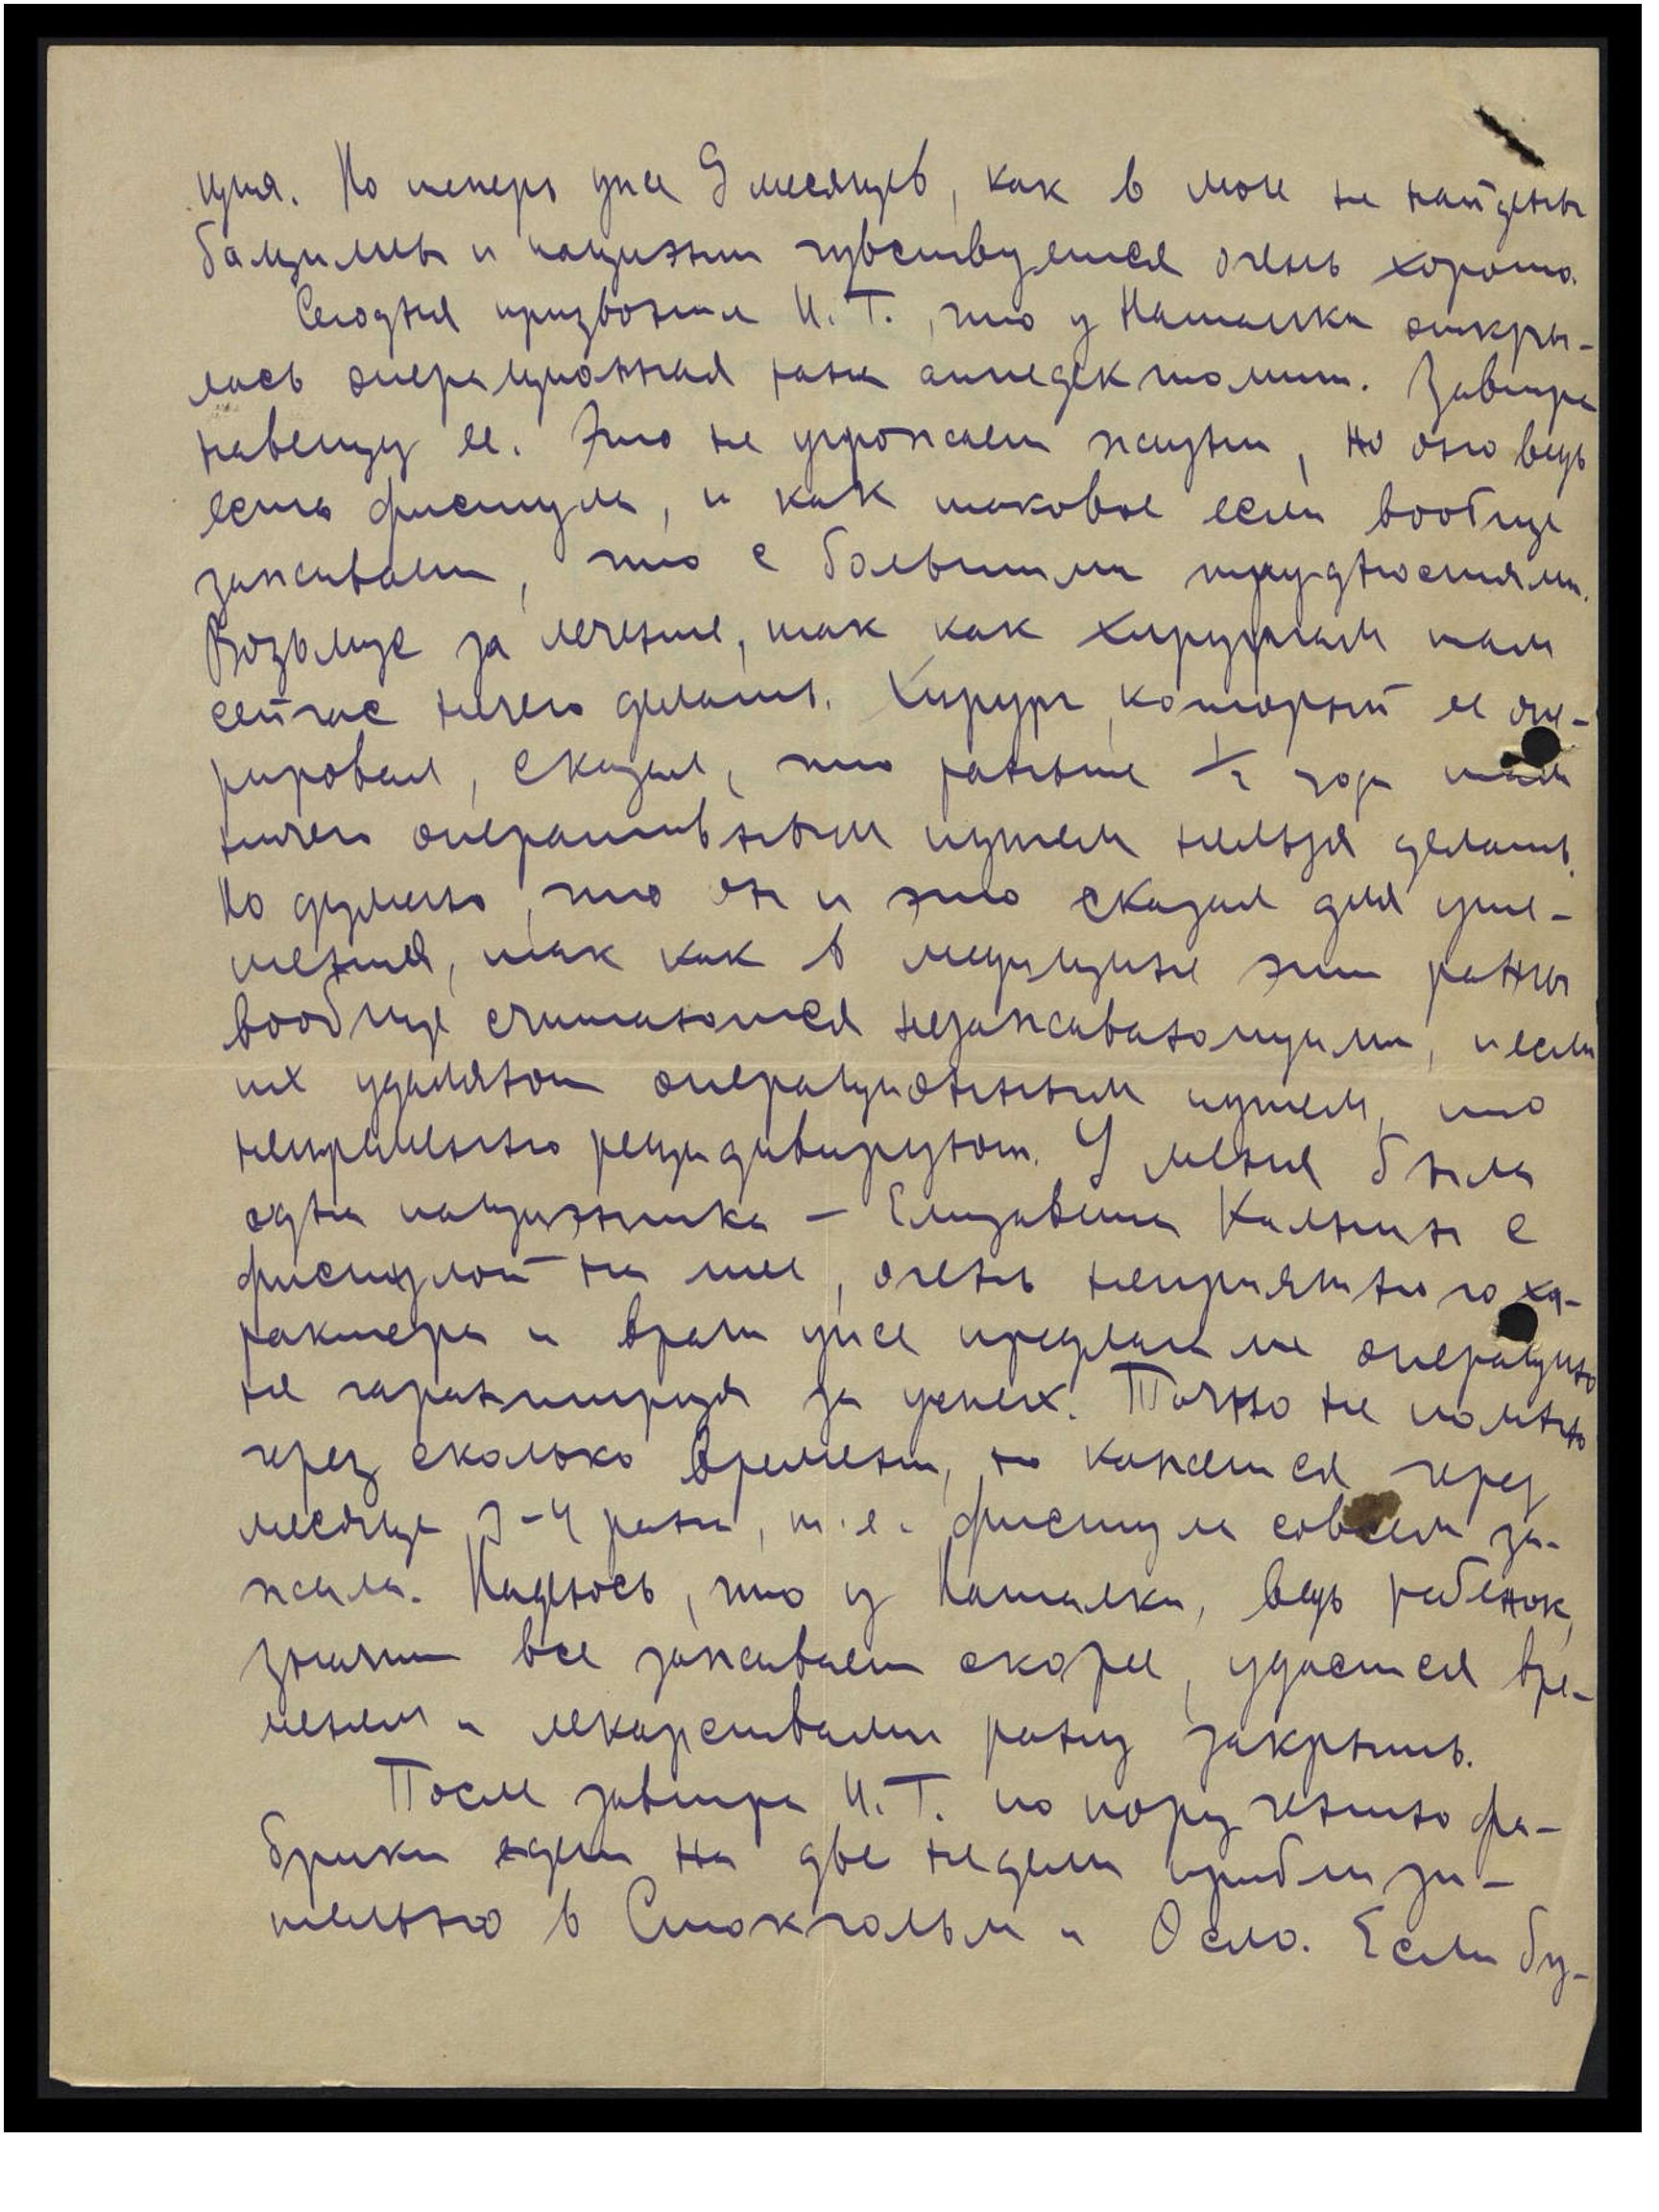 ция. Но теперь уже 9 месяцев, как в моче не найдены
бациллы и пациэнт чувствуется очень хорошо.
Сегодня призвонил И. Т., что у Наташки откры-
лась операционная рана аппедектомии. Завтра
навещу ее. Это не угрожает жизни, но оно ведь
есть фистула, и как таковое если вообще
заживает, то с большими трудностями.
Возьмусь за лечение, так как хирургам там
сейчас нечего делать. Хирург, который ее опе-
рировал, сказал, что раньше ½ года там
ничего оперативным путем нельзя делать.
Но думаю, что он и это сказал для уте-
шения, так как в медицине эти раны
вообще считаются незаживающими, и если
их удаляют операционным путем, то
непременно рецидивируют. У меня была
одна пациэнтка – Елизавета Калнин с
фистулой на шее, очень неприятного ха-
рактера и врачи уже предлагали операцию
не гарантируя за успех. Точно не помню
через сколько времени, но кажется через
месяца 3-4 рана, т. е. фистула совсем за-
жила. Надеюсь, что у Наталки, ведь ребенок,
значит все заживает скорее, удастся вре-
менем и лекарствами рану закрыть.
После завтра И. Т. по поручению фа-
брики едет на две недели приблизи-
тельно в Стокгольм и Осло. Если бу-